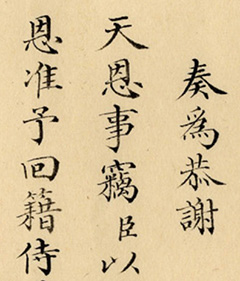 奏為恭謝
天恩事竊臣以
恩准予回籍侍